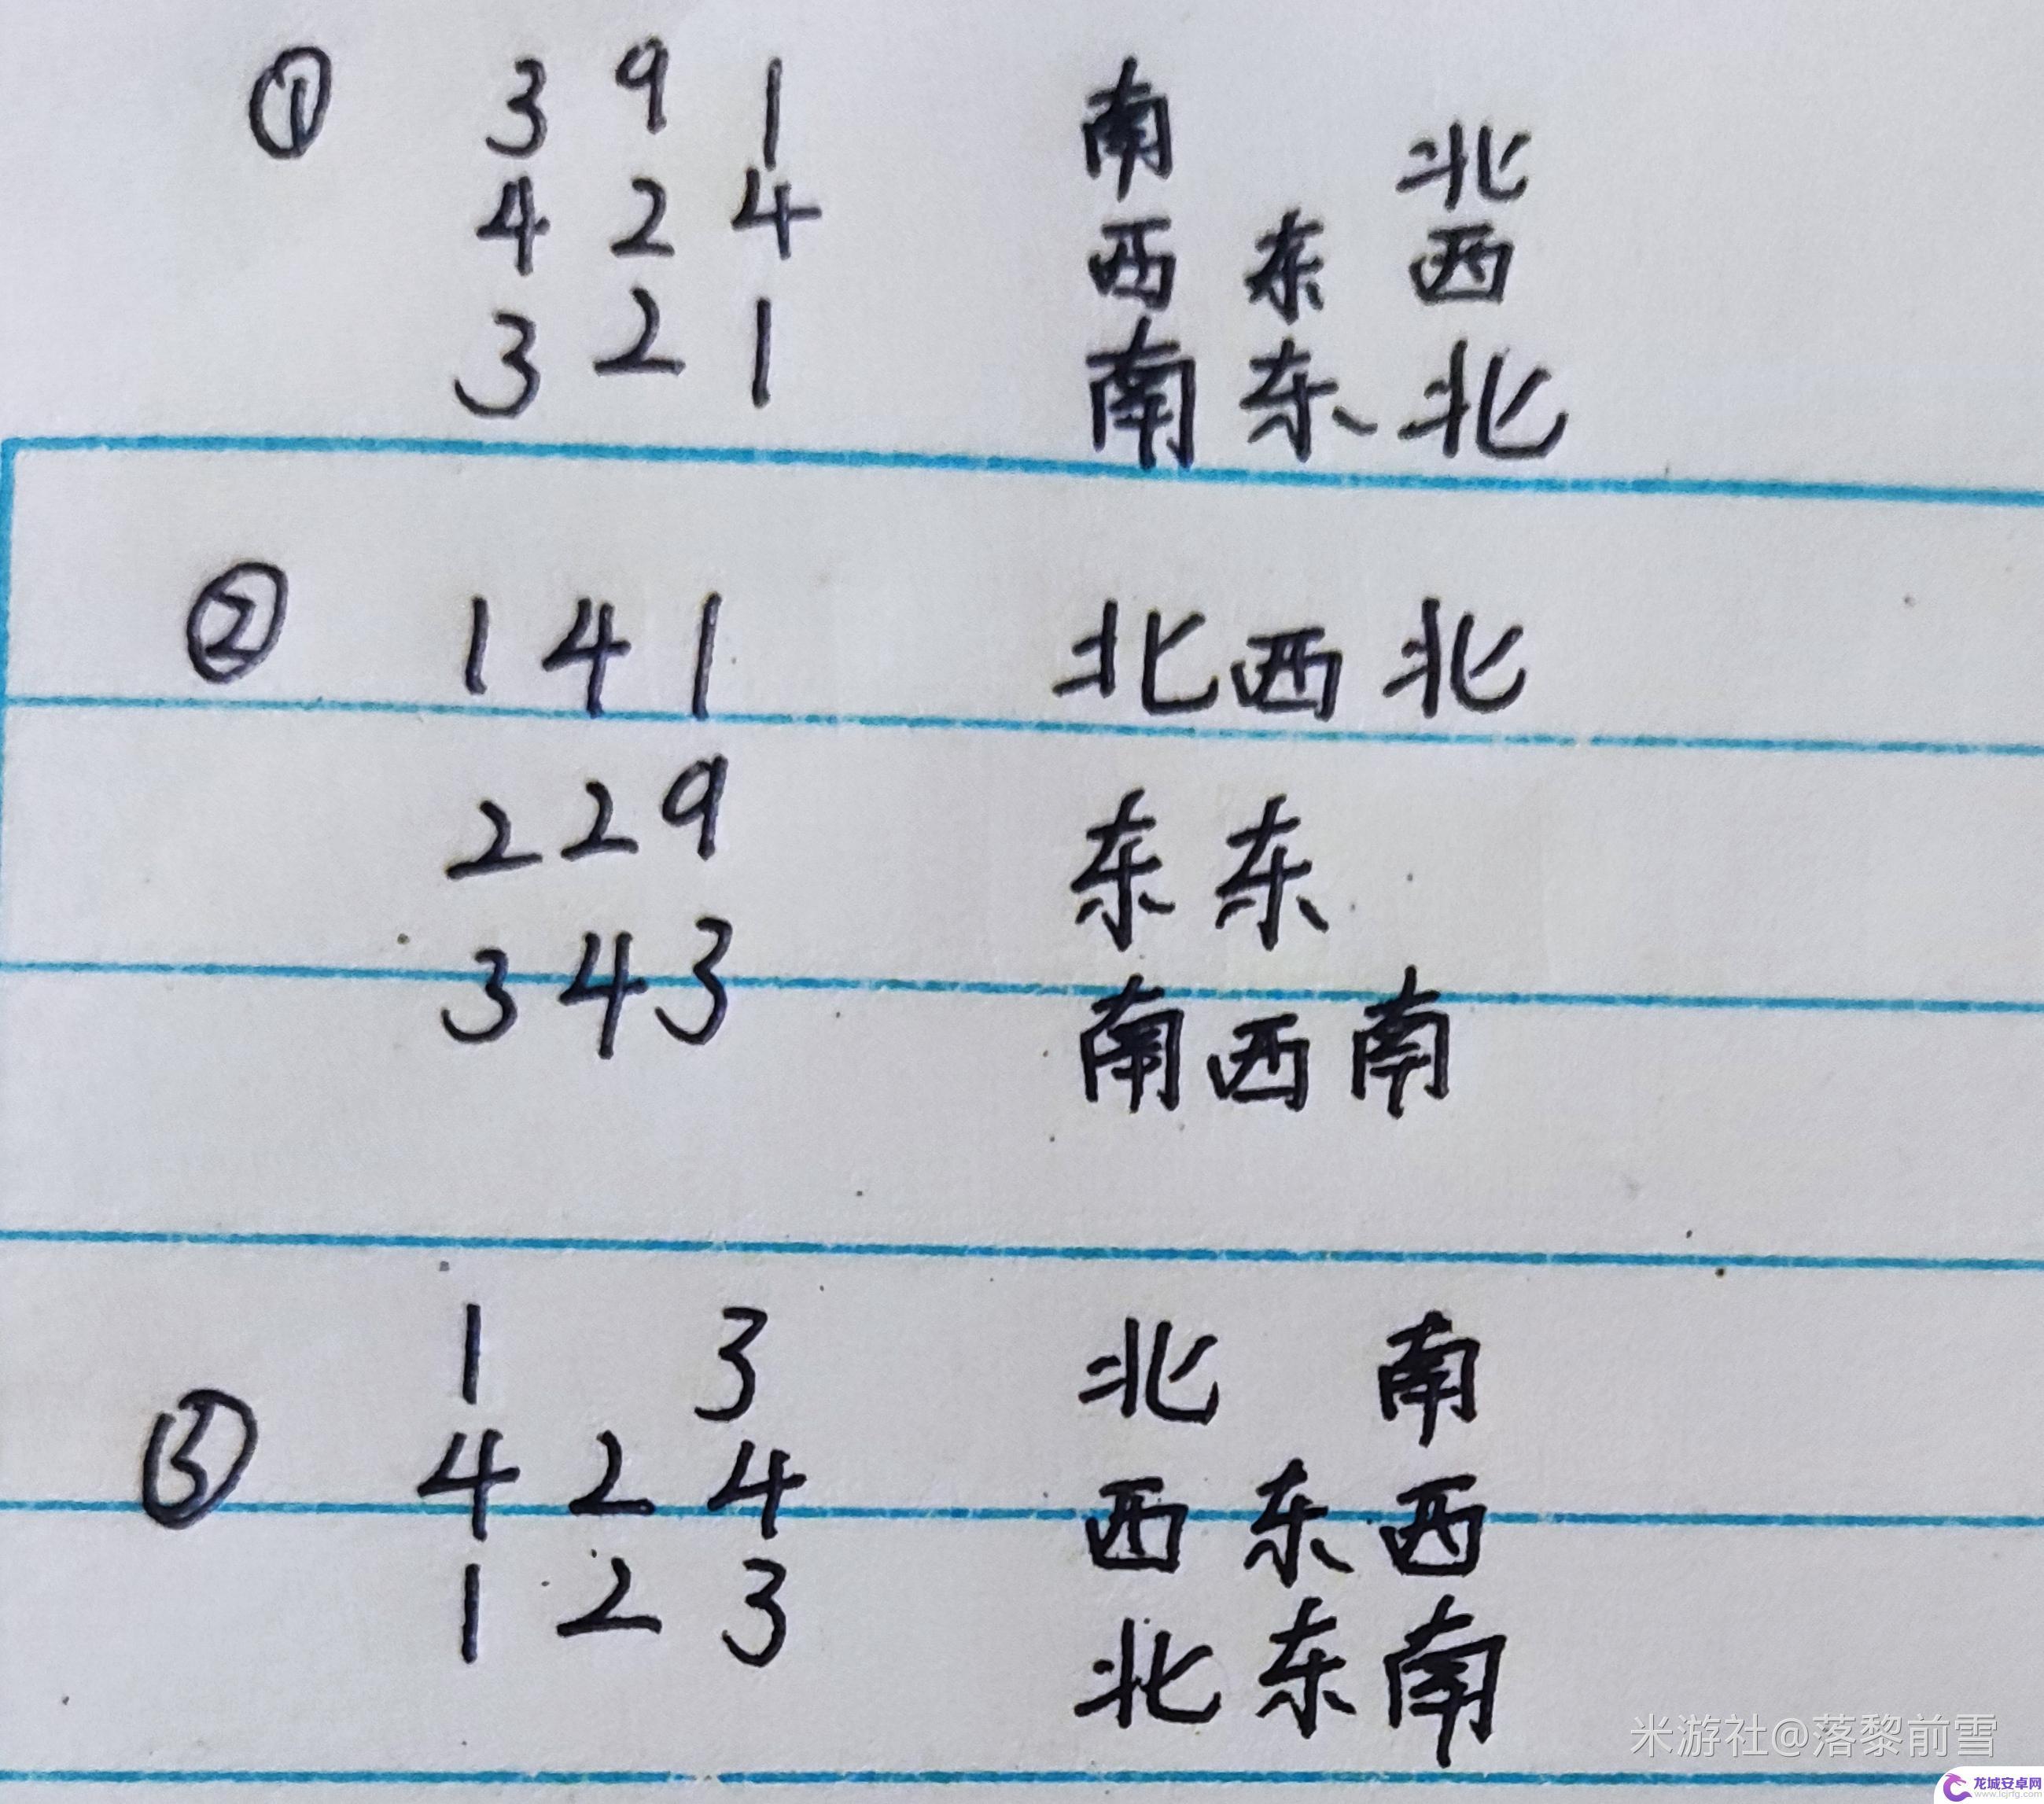 ① 3 9 1 南 北
4 2 4 西 东 西
3 2 1 南 东 北
② 1 4 1 北 西 北
2 2 9 东 东
3 4 3 南 西 南
1 3 北 南
③ 4 2 4 西 东 西
1 2 3 北 东 南
米游社@落黎前雪
龙城安卓网
www.lcjrfg.com